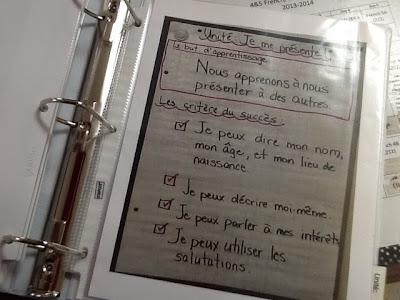 A&S French
2013-2014
Unité: Je me présente!
Le but d'apprentissage
Nous apprenons à nous
présenter à des autres.
Les critère du succès.
Je peux dire mon nom,
mon âge, et mon lieu de
naissance
Je peux décrire moi-même.
Je peux parler à mes intérêts
Je peux utiliser les
salutations